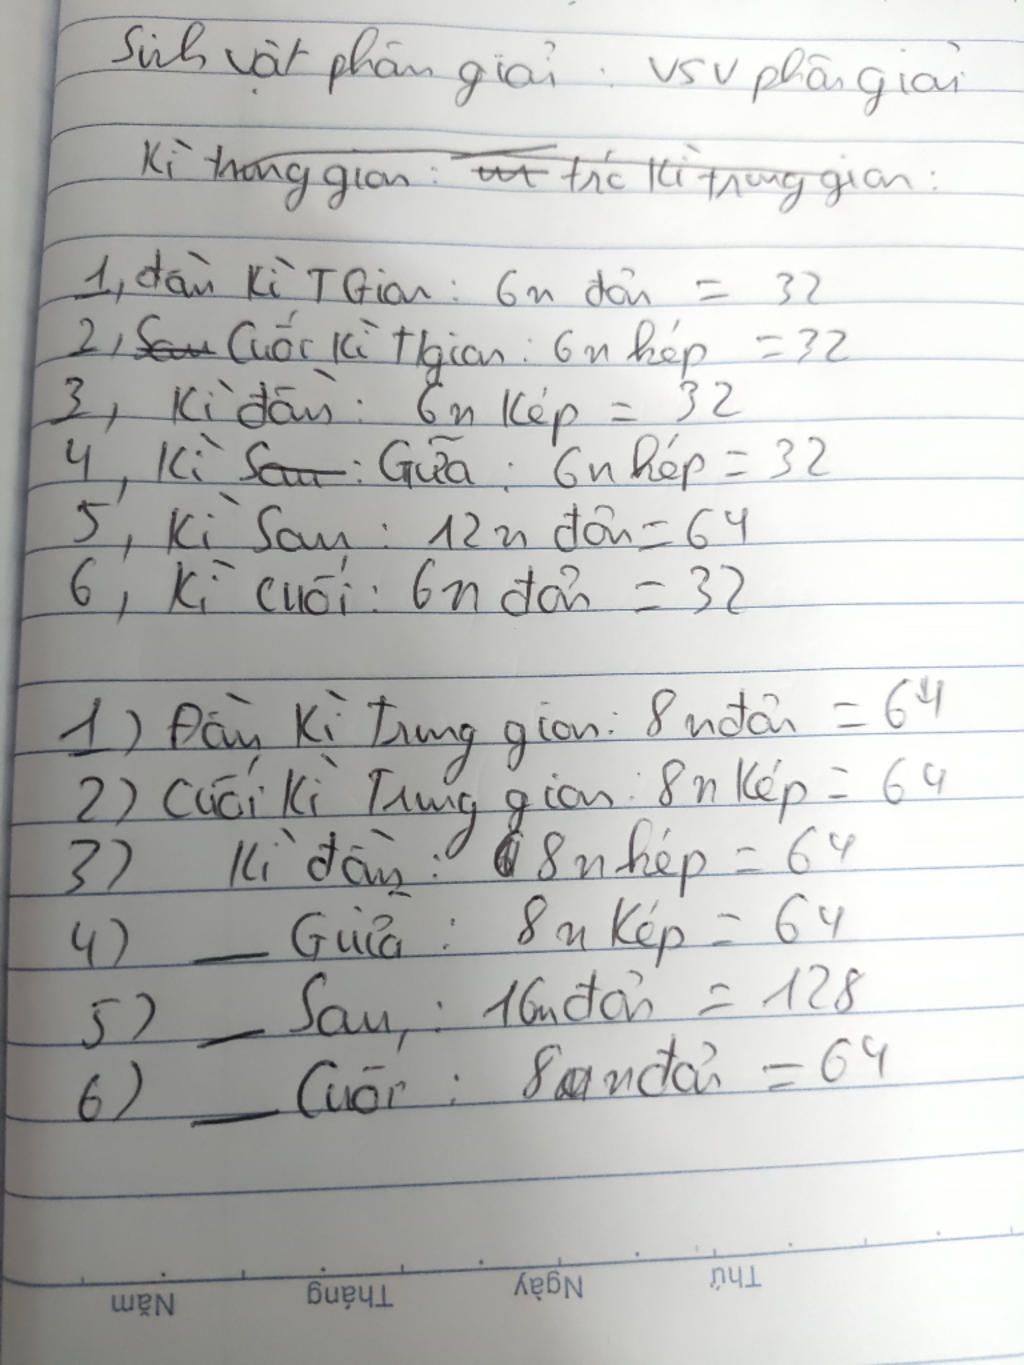 Sinh vật phân giải : VSV phân giải
Kì trung gian : trc Kì trung gian :
1, đầu Kì TGian : 6n đơn = 32
2, Sau Cuối Kì Tgian : 6n kép = 32
3, Kì đầu : 6n Kép = 32
4, Kì Sau : Giữa : 6n kép = 32
5, Kì Sau : 12n đơn = 64
6, Kì cuối : 6n đơn = 32
1) Đầu Kì Trung gian : 8n đơn = 64
2) Cuối Kì Trung gian : 8n Kép = 64
3) Kì đầu : 8n kép = 64
4) __ Giữa : 8n Kép = 64
5) __ Sau : 16n đơn = 128
6) __ Cuối : 8n đơn = 64
Năm Tháng Ngày Thứ